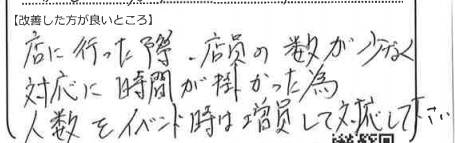 【改善した方が良いところ】
店に行った際、店員の数が少なく
対応に時間が掛かった為
人数をイベント時は増員して対応して下さい